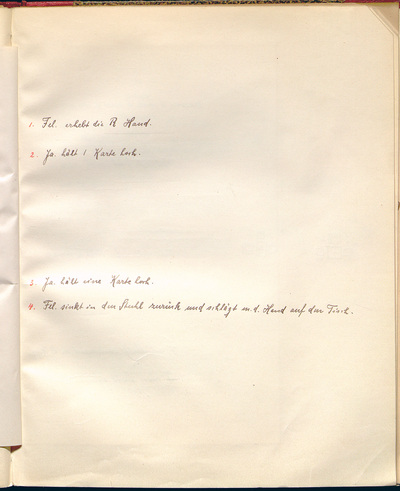 1. Fel. erhebt die R Hand.
2. Ja. hält 1 Karte hoch.
3. Ja. hält eine Karte hoch.
4. Fel. sinkt in den Stuhl zurück und schlägt m. d. Hand auf den Tisch.